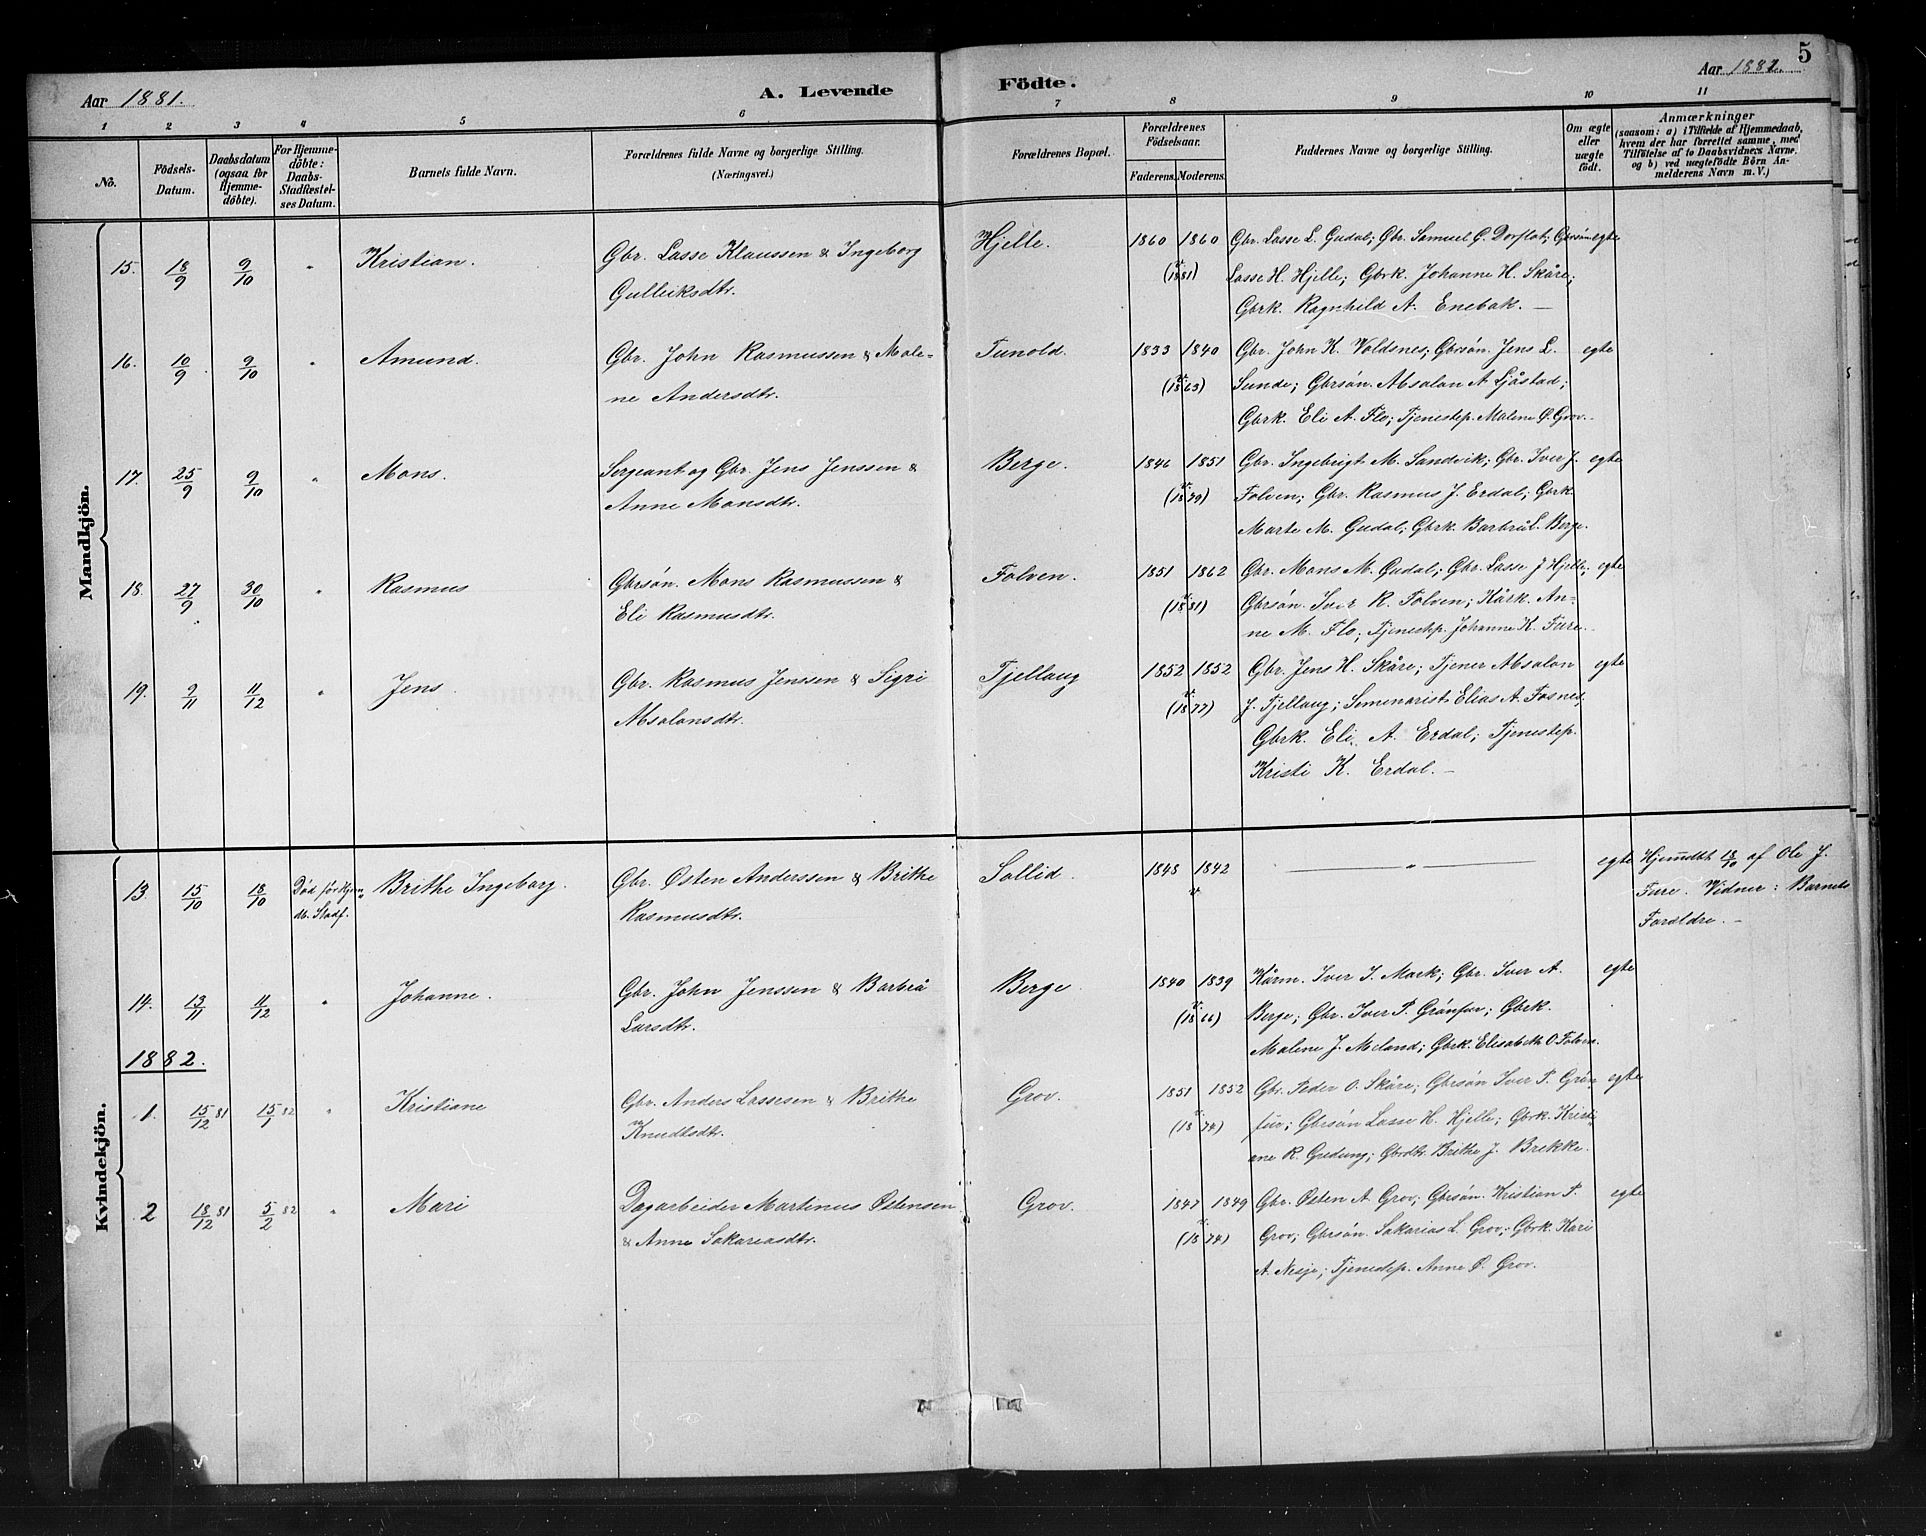 Aar 1881.
A. Levende
Födte.
Aar 1882.
5
1 2 3 4 5 6 7 8 9 10 11
No.
Födsels-
Datum.
Daabsdatum
(ogsaa for
Hjemme-
döbte).
For Hjemme-
döbte:
Daabs-
Stadfæstel-
ses Datum.
Barnets fulde Navn.
Forældrenes fulde Navne og borgerlige Stilling.
(Næringsvei.)
Forældrenes Bopæl.
Forældrenes
Födselsaar.
Faderens. Moderens.
Faddernes Navne og borgerlige Stilling.
Om ægte
eller
uægte
födt.
Anmærkninger
(saasom: a) i Tilfælde af Hjemmedaab,
hvem der har forrettet samme, med
Tilföielse af to Daabsvidners Navne,
og b) ved uægtefödte Börn An-
melderens Navn m. V.)
Mandkjön.
15. 18/9 9/10 " Kristian. Gbr. Lasse Klaussen & Ingeborg Hjelle. 1860 1860 Gbr. Lasse L. Gudal; Gbr. Samuel G. Dorflot; Gbrsøn egte
Gulleiksdtr. (v. 1881) Lasse H. Hjelle; Gbrk. Johanne H. Skåre;
Gbrk. Ragnhild A. Enebak. —
16. 10/9 9/10 " Amund. Gbr. John Rasmussen & Male- Tunold. 1833 1840 Gbr. John K. Voldsnes; Gbrsøn. Jens L. egte
ne Andersdtr. (v. 1863) Sunde; Gbrsøn. Absalon A. Sjåstad;
Gbrk. Eli A. Flo; Tjenestep. Malene Ø. Grov.
17. 25/9 9/10 " Mons. Sergeant og Gbr. Jens Jenssen & Berge. 1846 1851 Gbr. Ingebrigt M. Sandvik; Gbr. Iver J. egte
Anne Monsdtr. (v. 1879) Folven; Gbr. Rasmus J. Erdal; Gbrk.
Marte M. Gudal; Gbrk. Barbru L. Berge.
18. 27/9 30/10 " Rasmus Gbrsøn. Mons Rasmussen & Folven. 1851 1862 Gbr. Mons M. Gudal; Gbr. Lasse J. Hjelle; egte
Eli Rasmusdtr. (v. 1881) Gbrsøn. Iver R. Folven; Kårk. An-
ne M. Flo; Tjenestep. Johanne K. Fure.
19. 9/11 11/12 " Jens. Gbr. Rasmus Jenssen & Sigri Tjellaug 1852 1852 Gbr. Jens H. Skåre; Tjener Absalon egte
Absalonsdtr. (v. 1877) J. Tjellaug; Semenarist Elias A. Fosnes;
Gbrk. Eli A. Erdal; Tjenestep.
Kristi K. Erdal. —
Kvindekjön.
13. 15/10 18/10 Død før Hjem- Brithe Ingeborg. Gbr. Østen Anderssen & Brithe Sollid. 1848 1842 " egte Hjemdbt 18/10 af Ole J.
db. Stadf. Rasmusdtr. Fure. Vidner: Barnets
Forældre. —
14. 13/11 11/12 " Johanne. Gbr. John Jenssen & Barbrå Berge. 1840 1839 Kårm. Iver I. Mark; Gbr. Iver A. egte
Larsdtr. (v. 1866) Berge; Gbr. Iver P. Grønfur; Gbrk.
Malene J. Meland; Gbrk. Elisabeth O. Folven.
1882.
1. 15/12 81 15/1 82 " Kristiane Gbr. Anders Lassesen & Brithe Grov. 1851 1852 Gbr. Peder O. Skåre; Gbrsøn Iver P. Grøn- egte
Knudtsdtr. (v. 1874) fur; Gbrsøn Lasse H. Hjelle; Gbrk. Kristi-
ane R. Gredung; Gbrdtr. Brithe J. Brekke.
2 18/12 81 5/2 82 " Mari Dagarbeider Martinus Østensen Grov. 1847 1849 Gbr. Østen A. Grov; Gbrsøn. Kristian P. egte
& Anne Sakariasdtr. (v. 1874) Grov; Gbrsøn. Sakarias L. Grov; Gbrk. Kari
A. Nesje; Tjenestep. Anne Ø. Grov.